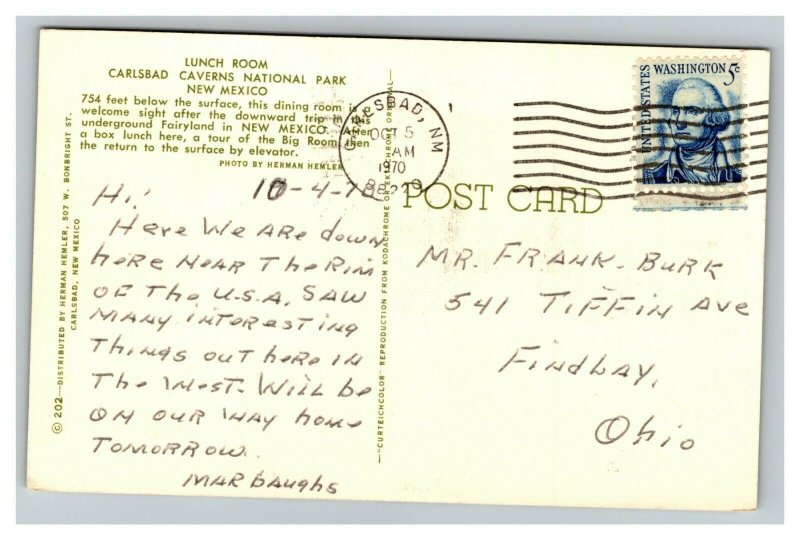 LUNCH ROOM
CARLSBAD CAVERNS NATIONAL PARK
NEW MEXICO
754 feet below the surface, this dining room is a
welcome sight after the downward trip in this
underground Fairyland in NEW MEXICO. After
a box lunch here, a tour of the Big Room then
the return to the surface by elevator.
PHOTO BY HERMAN HEMLER
10-4-70
Hi!
Here We ARe down
heRe NeAR The Rim
OF The U.S.A. SAW
MANY INTeResTINg
Things out heRe IN
The West. Will be
ON OUR WAY home
TOMORROW.
MARbaughs
© 202—DISTRIBUTED BY HERMAN HEMLER, 507 W. BONBRIGHT ST.
CARLSBAD, NEW MEXICO
"CURTEICHCOLOR" REPRODUCTION FROM KODACHROME OR EKTACHROME ORIGINAL
CARLSBAD, NM
OCT 5
AM
1970
88220
UNITED STATES
WASHINGTON 5c
POST CARD
MR. FRANK. BURK
541 TIFFIN Ave
Findlay,
Ohio